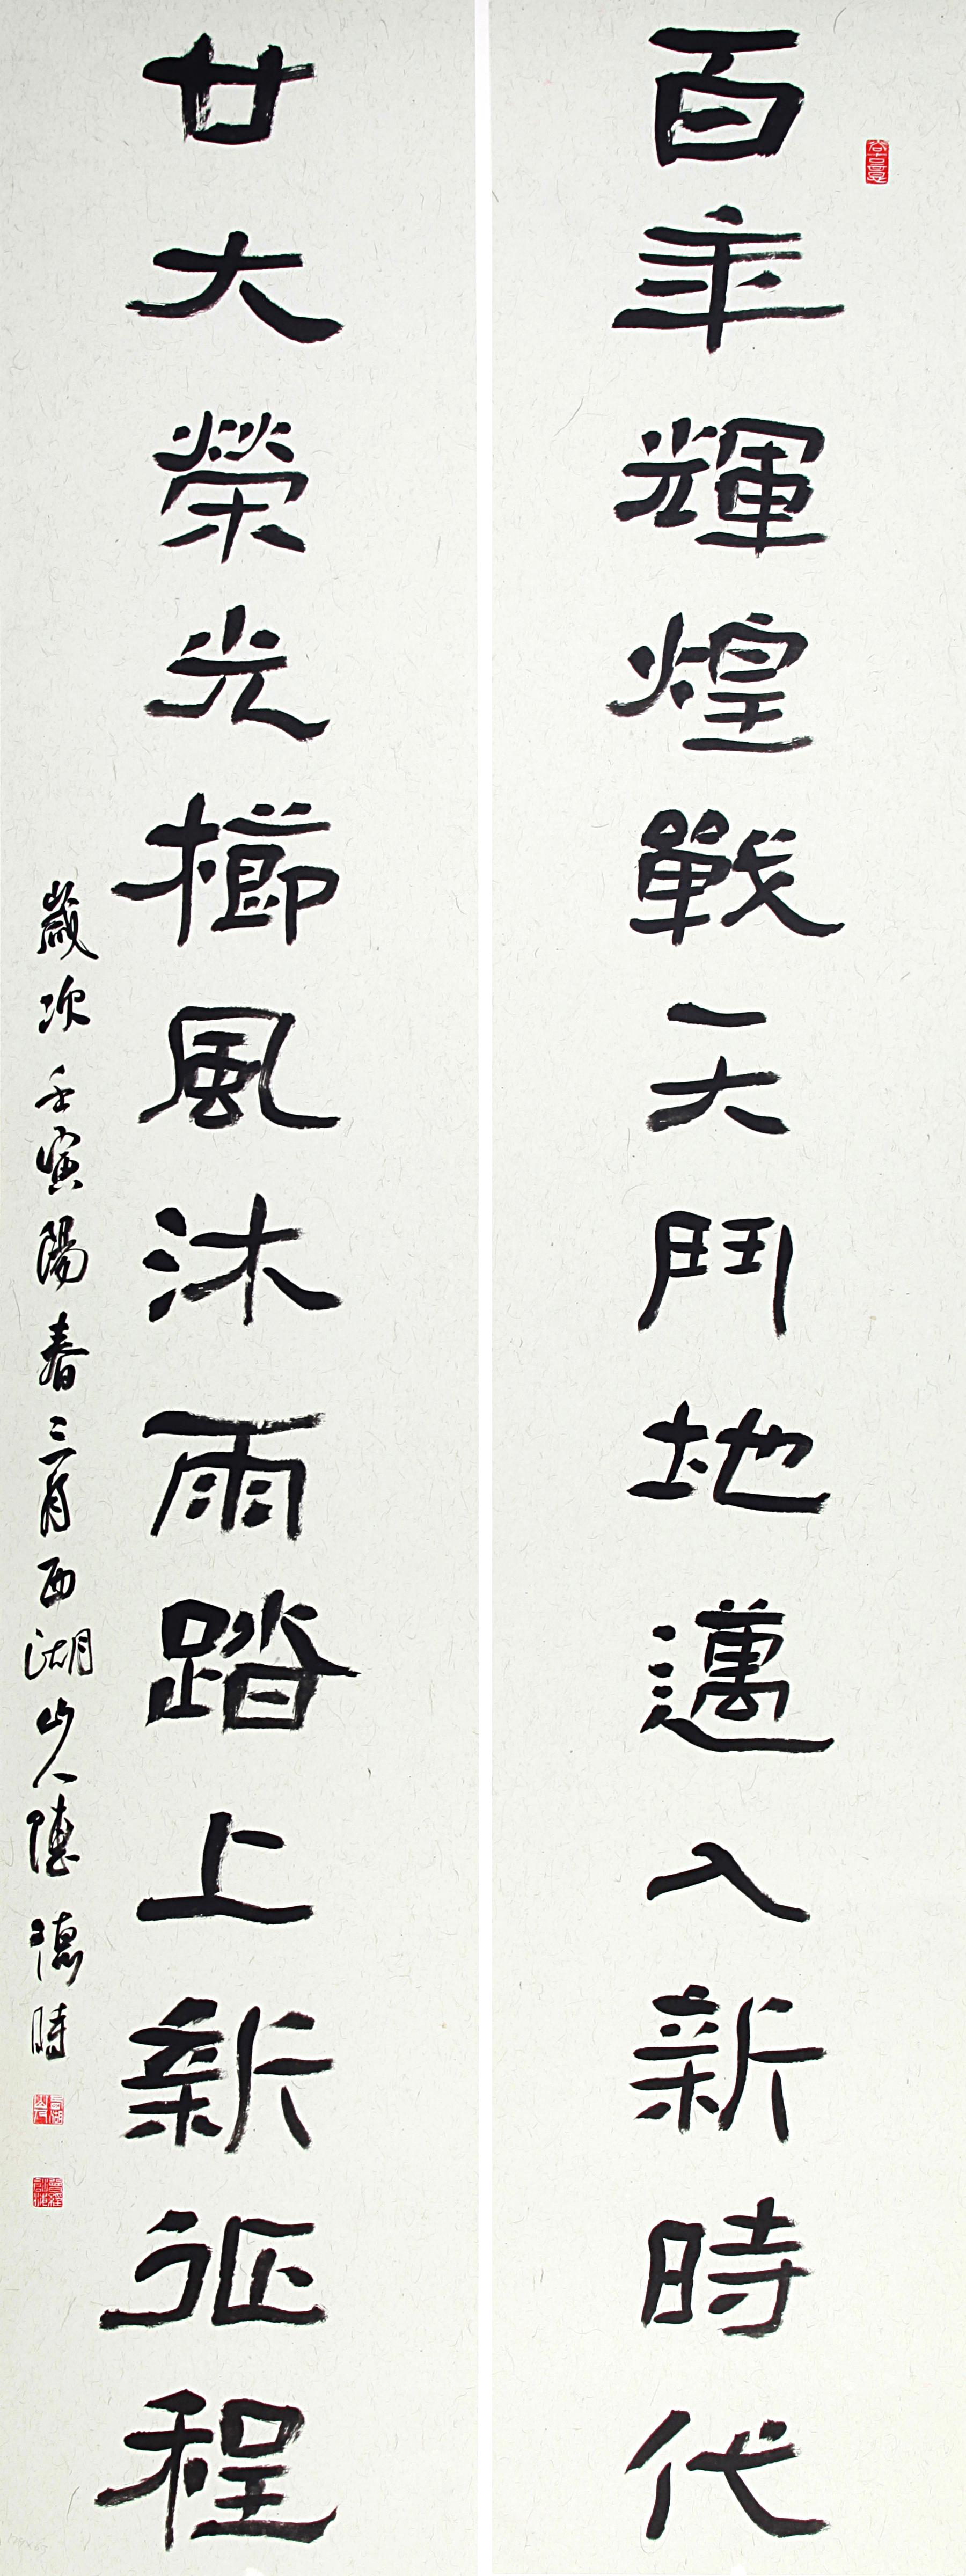 百年輝煌戰天鬥地邁入新時代
廿大榮光櫛風沐雨踏上新征程
歲次壬寅陽春三月西湖山人陳德時